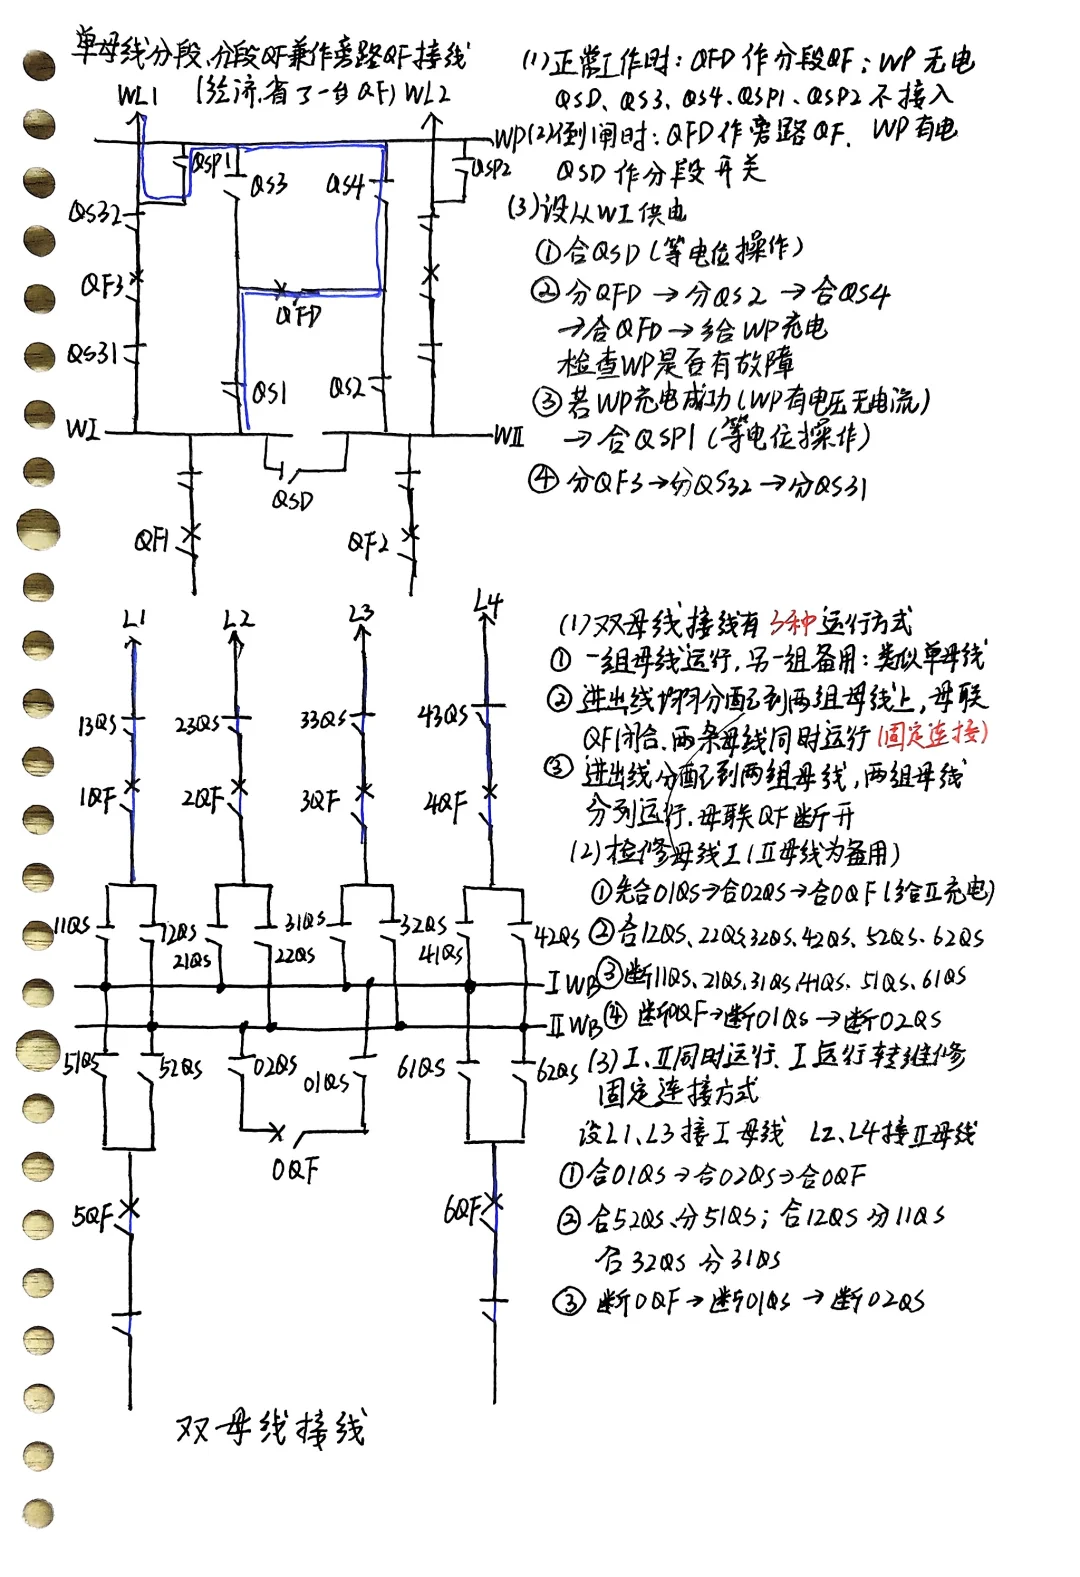 单母线分段、分段QF兼作旁路QF接线
(经济,省了一台QF)
WL1
WL2
WP
QSP1
QS3
QS4
QSP2
QS32
QF3
QFD
QS31
QS1
QS2
WI
WII
QSD
QF1
QF2
(1)正常工作时:QFD作分段QF;WP无电
QSD、QS3、QS4、QSP1、QSP2不接入
(2)倒闸时:QFD作旁路QF、WP有电
QSD作分段开关
(3)设从WI供电
①合QSD(等电位操作)
②分QFD→分QS2→合QS4
→合QFD→给WP充电
检查WP是否有故障
③若WP充电成功(WP有电压无电流)
→合QSP1(等电位操作)
④分QF3→分QS32→分QS31
L1
L2
L3
L4
13QS
23QS
33QS
43QS
1QF
2QF
3QF
4QF
11QS
12QS
21QS
22QS
31QS
32QS
41QS
42QS
I WB
II WB
51QS
52QS
02QS
01QS
61QS
62QS
0QF
5QF
6QF
双母线接线
(1)双母线接线有3种运行方式
①一组母线运行,另一组备用:类似单母线
②进出线均匀分配到两组母线上,母联
QF闭合,两条母线同时运行(固定连接)
③进出线分配到两组母线,两组母线
分列运行,母联QF断开
(2)检修母线I(II母线为备用)
①先合01QS→合02QS→合0QF(给II充电)
②合12QS、22QS、32QS、42QS、52QS、62QS
③断11QS、21QS、31QS、41QS、51QS、61QS
④断0QF→断01QS→断02QS
(3)I、II同时运行、I运行转维修
固定连接方式
设L1、L3接I母线 L2、L4接II母线
①合01QS→合02QS→合0QF
②合52QS、分51QS;合12QS分11QS
合32QS分31QS
③断0QF→断01QS→断02QS